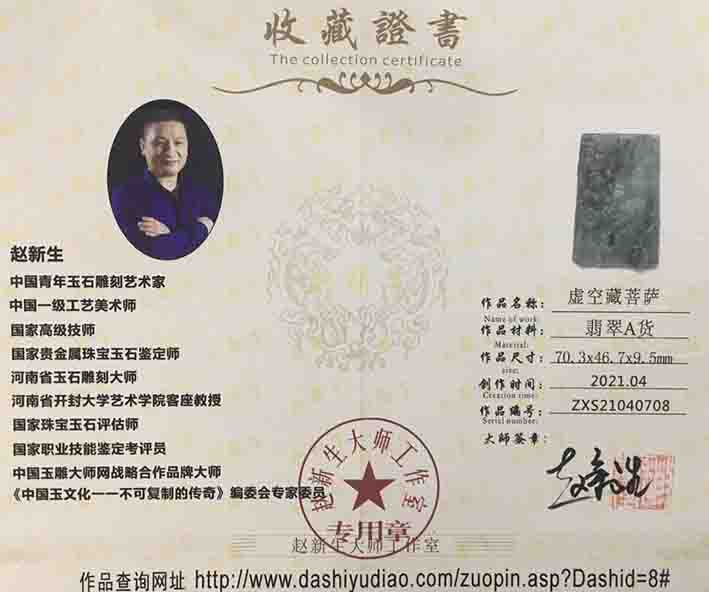 收藏證書
The collection certificate
赵新生
中国青年玉石雕刻艺术家
中国一级工艺美术师
国家高级技师
国家贵金属珠宝玉石鉴定师
河南省玉石雕刻大师
河南省开封大学艺术学院客座教授
国家珠宝玉石评估师
国家职业技能鉴定考评员
中国玉雕大师网战略合作品牌大师
《中国玉文化一一不可复制的传奇》编委会专家委员
作品名称：虚空藏菩萨
Name of work:
作品材料：翡翠A货
Material:
作品尺寸：70.3x46.7x9.5mm
size:
创作时间：2021.04
Creation time:
作品编号：ZXS21040708
Serial number:
大師签章：
赵新生
赵新生大师工作室
专用章
赵新生大师工作室
作品查询网址 http://www.dashiyudiao.com/zuopin.asp?Dashid=8#